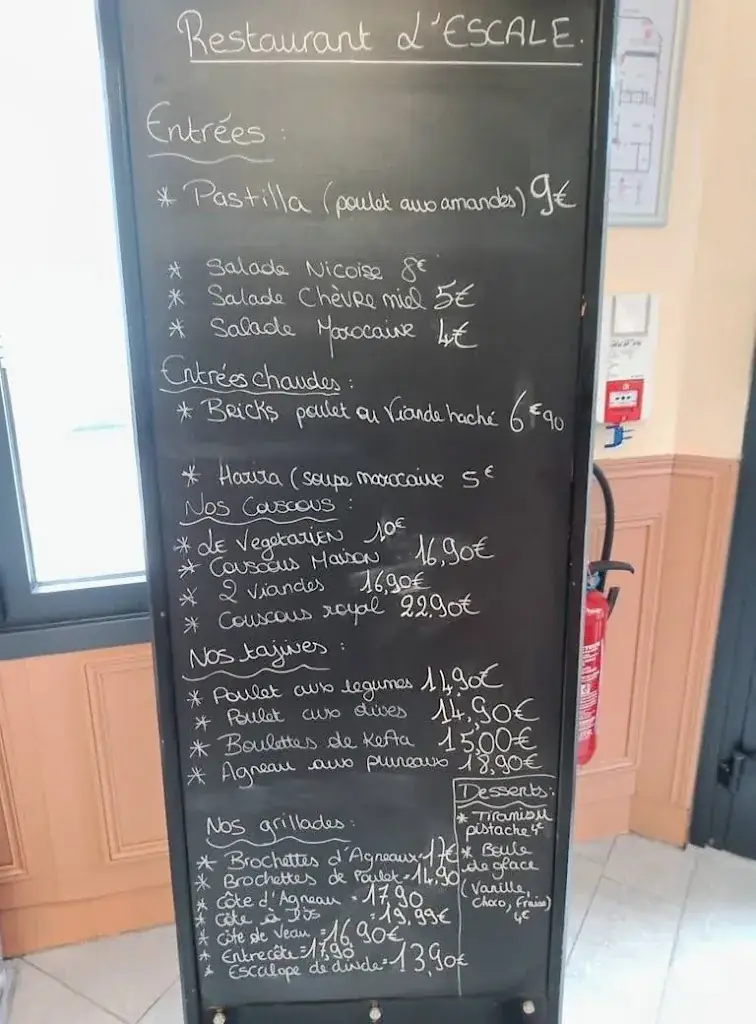 Restaurant L'ESCALE.
Entrées :
* Pastilla (poulet aux amandes) 9€
* Salade Nicoise 8€
* Salade Chèvre miel 5€
* Salade Marocaine 4€
Entrées chaudes :
* Bricks poulet ou Viande haché 6€90
* Harira (soupe marocaine 5€
Nos Couscous :
* LE Vegetarien 10€
* Couscous Maison 16,90€
* 2 viandes 16,90€
* Couscous royal 22,90€
Nos tajines :
* Poulet aux legumes 14,90€
* Poulet aux olives 14,90€
* Boulettes de Kefta 15,00€
* Agneau aux pruneaux 18,90€
Nos grillades :
* Brochettes d'Agneaux = 17€
* Brochettes de Poulet = 14,90
* côte d'Agneau = 17,90
* côte à l'os = 19,99€
* côte de Veau = 16,90€
* Entrecôte = 17,90
* Escalope de dinde = 13,90€
Desserts :
* Tiramisu
pistache 4€
* Boule
de glace
(Vanille,
Choco, Fraise)
4€